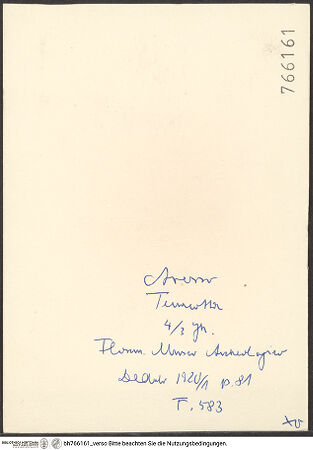 766161
Arezzo
Terracotta
4/3 Jh.
Florenz. Museo Archeologico
Dedalo 1920/1 p. 81
F. 583
XV
bh766161_verso Bitte beachten Sie die Nutzungsbedingungen.